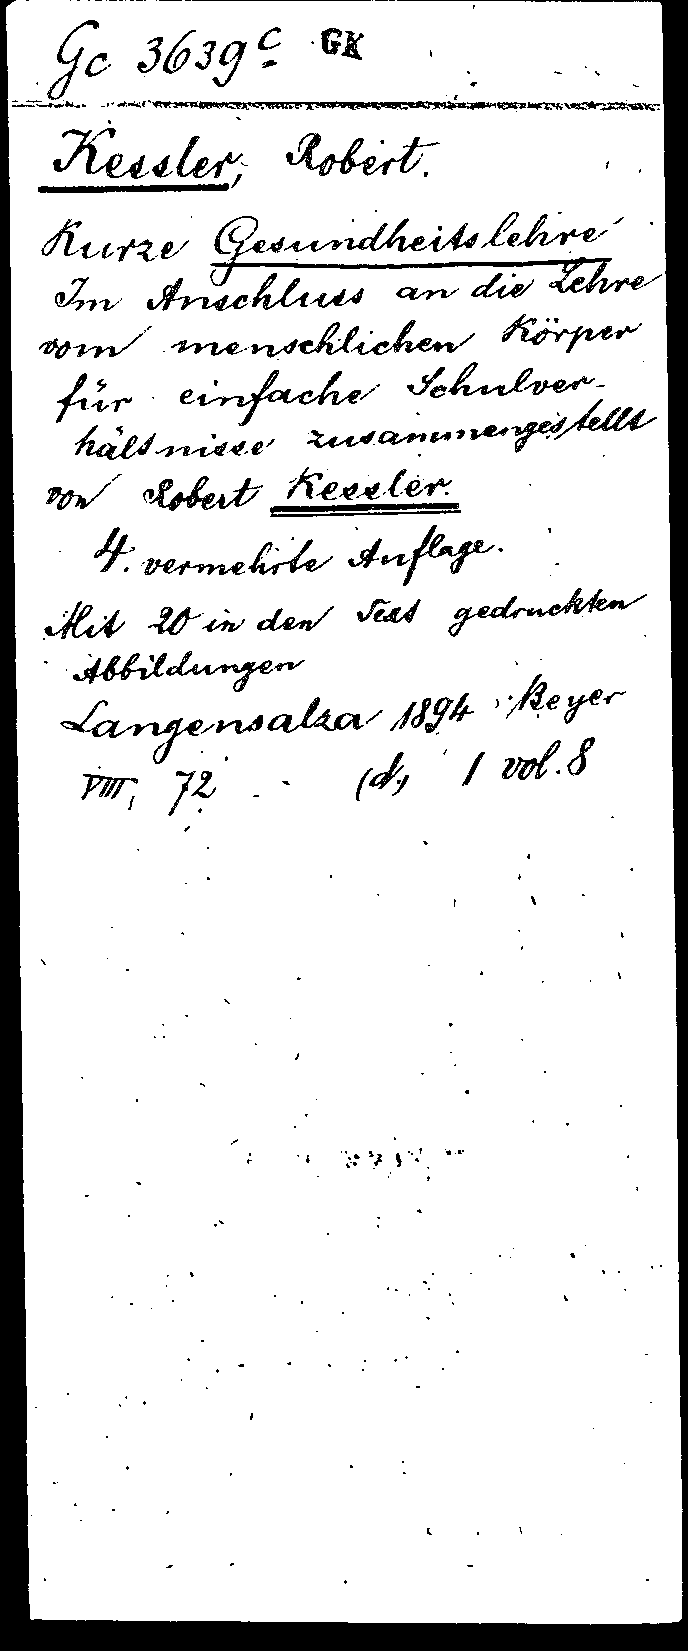 Gc 3639c GK
Kessler, Robert.
Kurze Gesundheitslehre
Im Anschluss an die Lehre
vom menschlichen Körper
für einfache Schulver-
hältnisse zusammengestellt
von Robert Kessler.
4. vermehrte Auflage.
Mit 20 in den Text gedruckten
Abbildungen
Langensalza 1894 Beyer
VIII, 72 (d.) 1 vol. 8